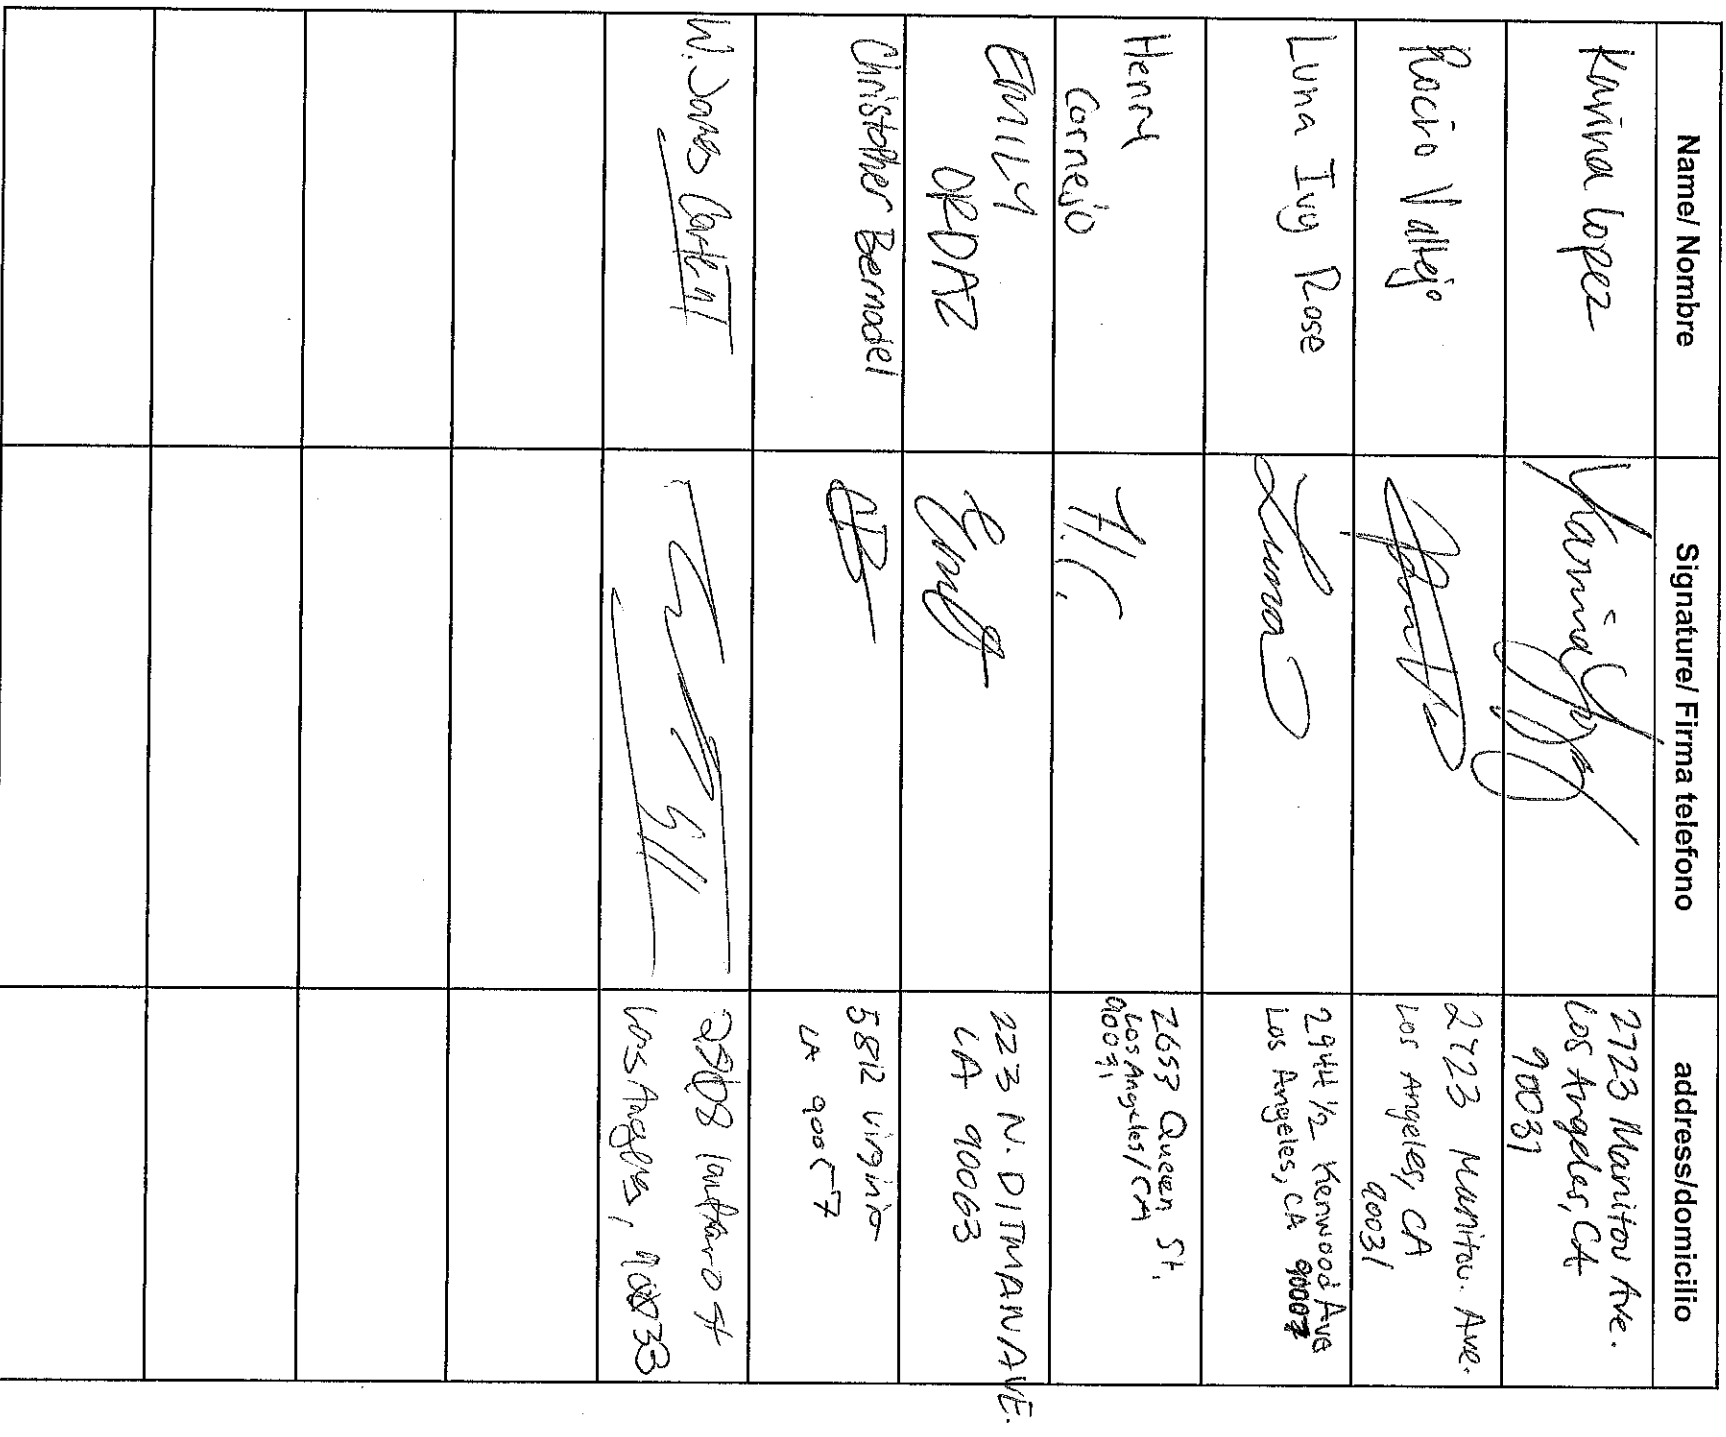 Name/ Nombre
Signature/ Firma telefono
address/domicilio
Karina Lopez
Karina
2723 Manitou Ave.
Los Angeles, CA
90031
Rocio Vallejo
2723 Manitou. Ave.
Los Angeles, CA
90031
Luna Ivy Rose
Luna
2944 1/2 Kenwood Ave
Los Angeles, CA 90007
Henry
Cornejo
H.C.
2653 Queen St.
Los Angeles/CA
90031
EMILY
ORDAZ
Emily
223 N. DITMAN AVE.
LA 90063
Christopher Bernadel
CB
5812 Virginia
LA
W. James
Los Angeles, 90033